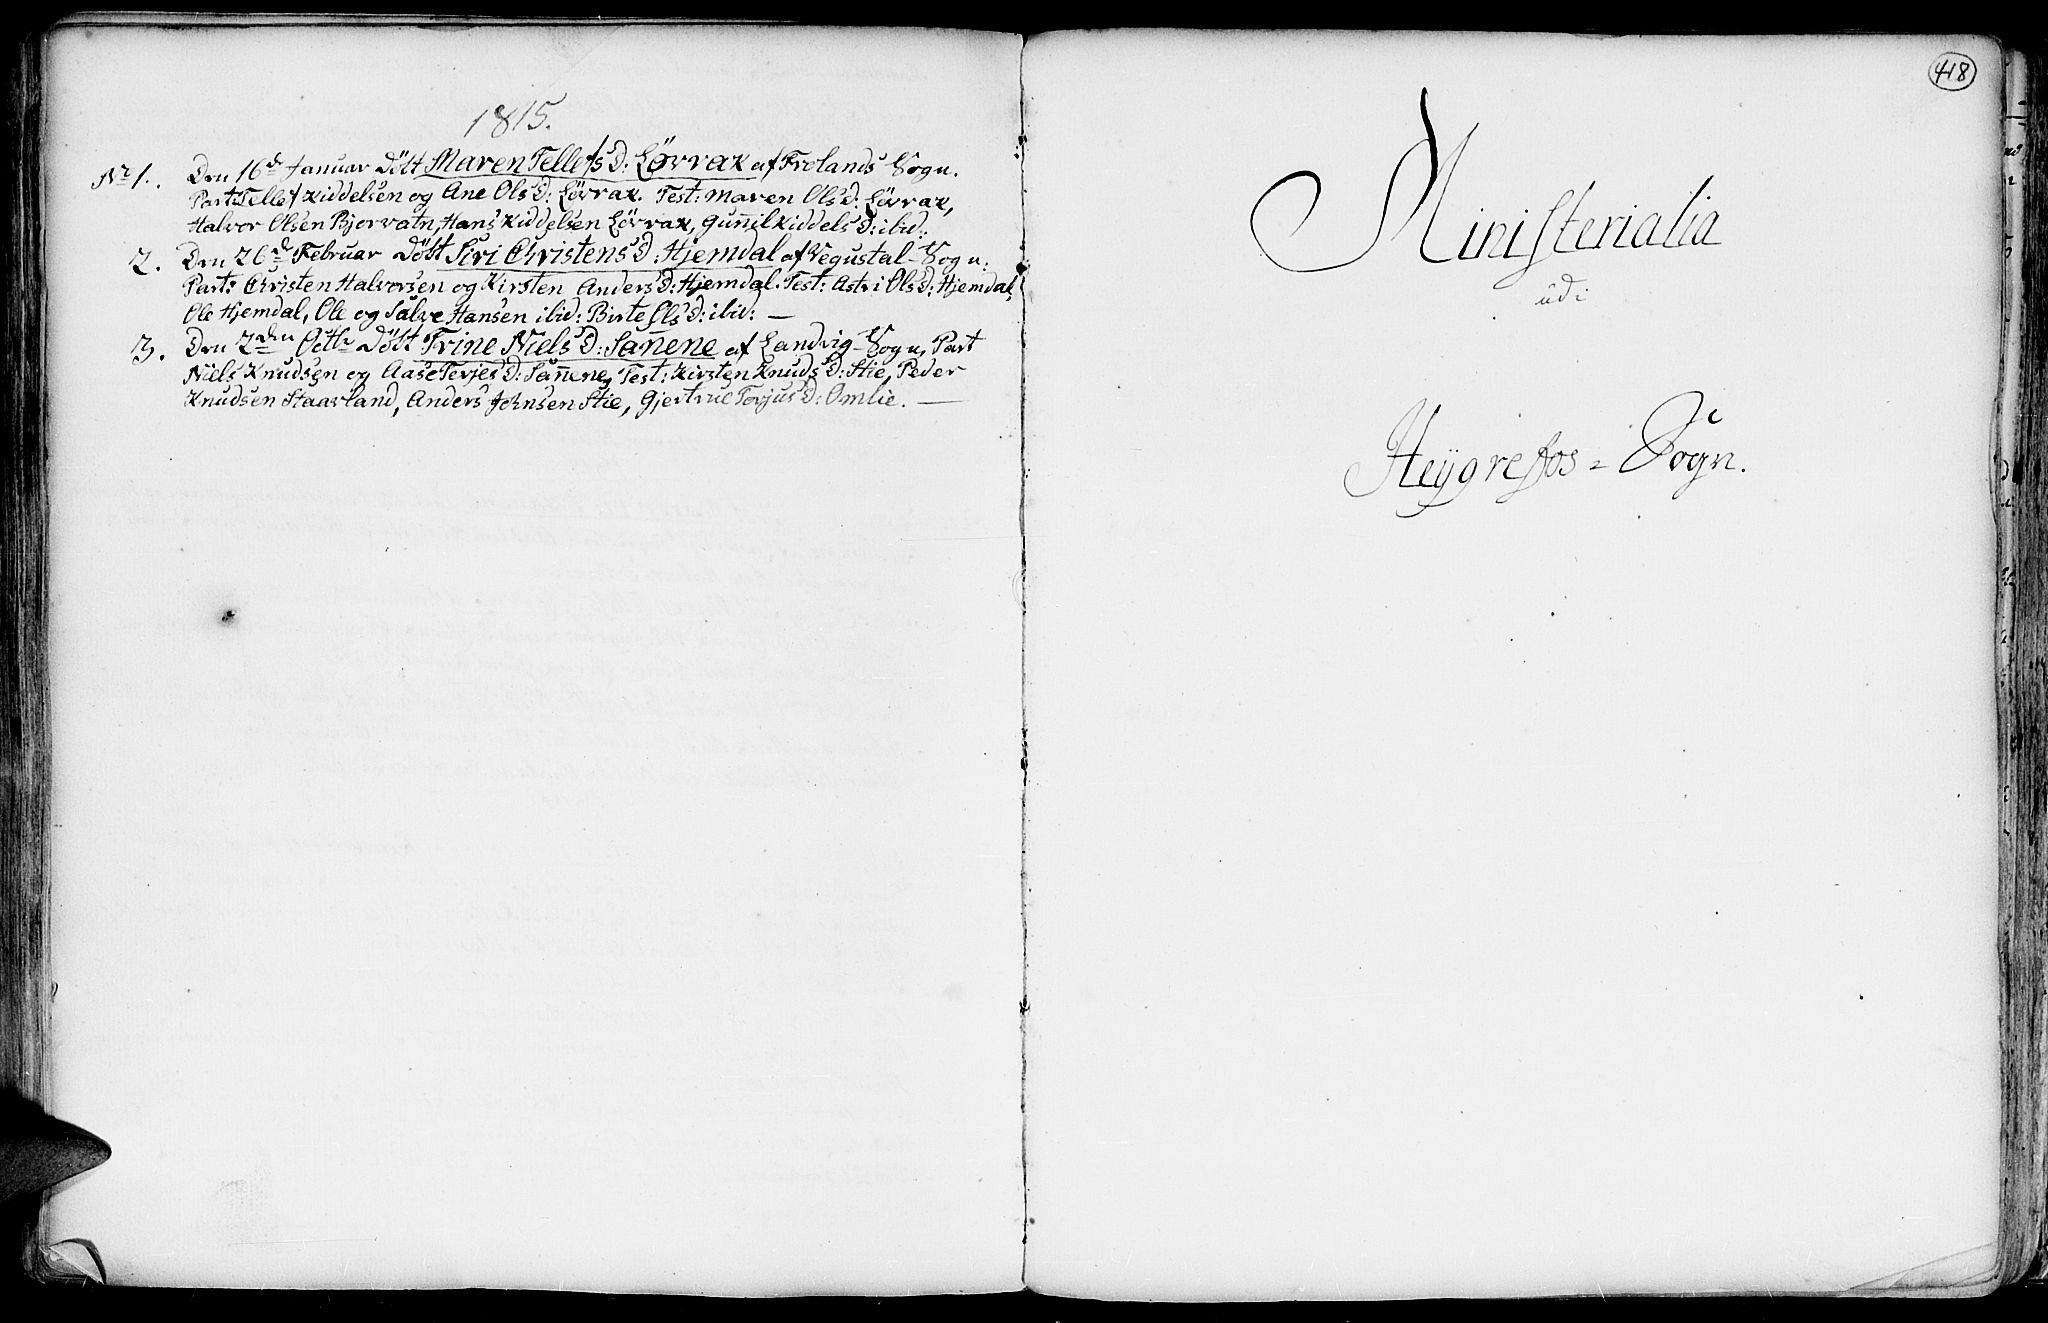 1815.
No 1. Den 16de Januar Döbt Maren TellefsD: Lövrak af Frolands Sogn.
Part: Tellef Kiddelsen og Ane OlsD: Lövrak. Test: Maren OlsD: Lövrak,
Halvor Olsen Bjorvatn, Hans Kiddelsen Lövrak, Gunnil KiddelsD: ibid:
2. Den 26de Februar Döbt Siri ChristensD: Hjemdal af Vegustal-Sogn:
Part: Christen Halvorsen og Kirsten AndersD: Hjemdal. Test: Astri OlsD: Hjemdal,
Ole Hjemdal, Ole og Salve Hansen ibid: Birte OlsD: ibid: —
3. Den 2den Octbr Döbt Trine NielsD: Sanene af Landvig-Sogn, Part
Niels Knudsen og Aase TerjesD: Sanene, Test: Kirsten KnudsD: Stie, Peder
Knudsen Staarland, Anders Johnsen Stie, Gjertrue TorjusD: Omlie. —
418
Ministerialia
udi
Heÿgrefos = Sogn.